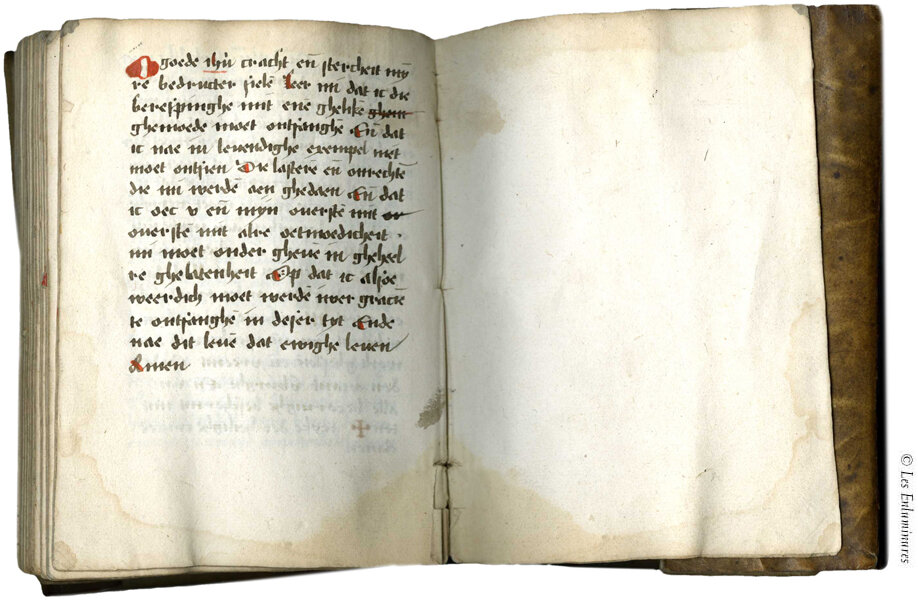 O goede ihū cracht en̄ stercheit mÿ
re bedructer siele̅ Leer mi dat ic die
berespinghe mit ene ghelike̅ ghem
ghemoede moet ontfanghe̅ En̄ dat
ic nae in levendighe exempel niet
moet ontsien Die lastere̅ en̄ onrechte
die mi werde̅ aen ghedaen En̄ dat
ic oec v en̄ mÿn overste̅ mit or
overste̅ mit alre oetmoedicheit ·
mi moet onder gheve̅ in gheheel
re ghelatenheit Op dat ic alsoe
weerdich moet werde̅ uwer gracie̅
te ontfanghe̅ in deser tyt Ende
nae dit leve̅ dat ewighe leven
Amen
© Les Enluminures